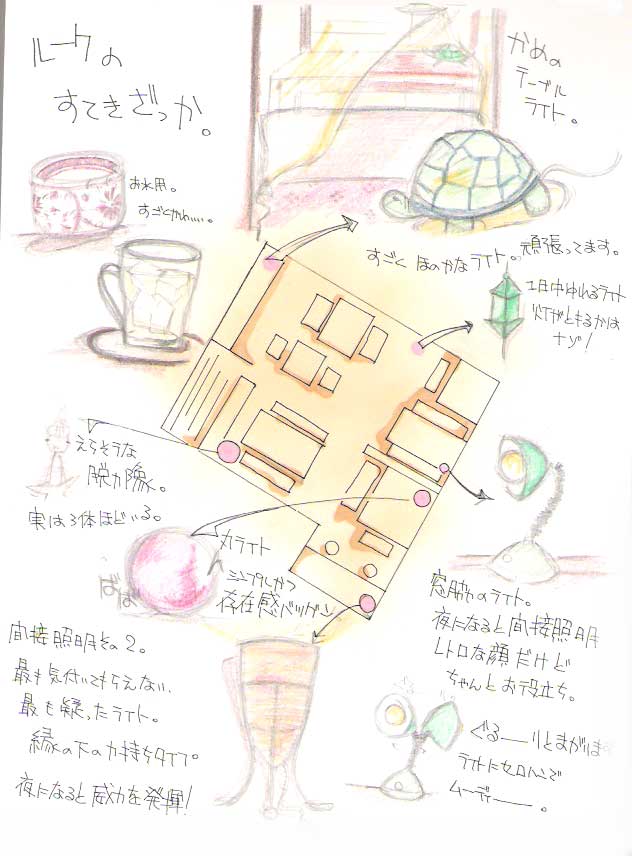 ルークの
すてきざっか。
かめの
テーブル
ライト。
お水用。
すごくかわいい。
すごくほのかなライト。頑張ってます。
1日中ゆれるライト
灯がともるかは
ナゾ!
えらそうな
脱力像。
実は3体ほどいる。
丸ライト
シンプルかつ
存在感バツグン
ばば
窓脇のライト。
夜になると間接照明
レトロな顔だけど
ちゃんとお役立ち。
間接照明その2。
最も気付いてもらえない、
最も凝ったライト。
縁の下の力持ちタイプ。
夜になると威力を発揮!
ぐるーりとまがります
ライトにセロハンで
ムーディー。